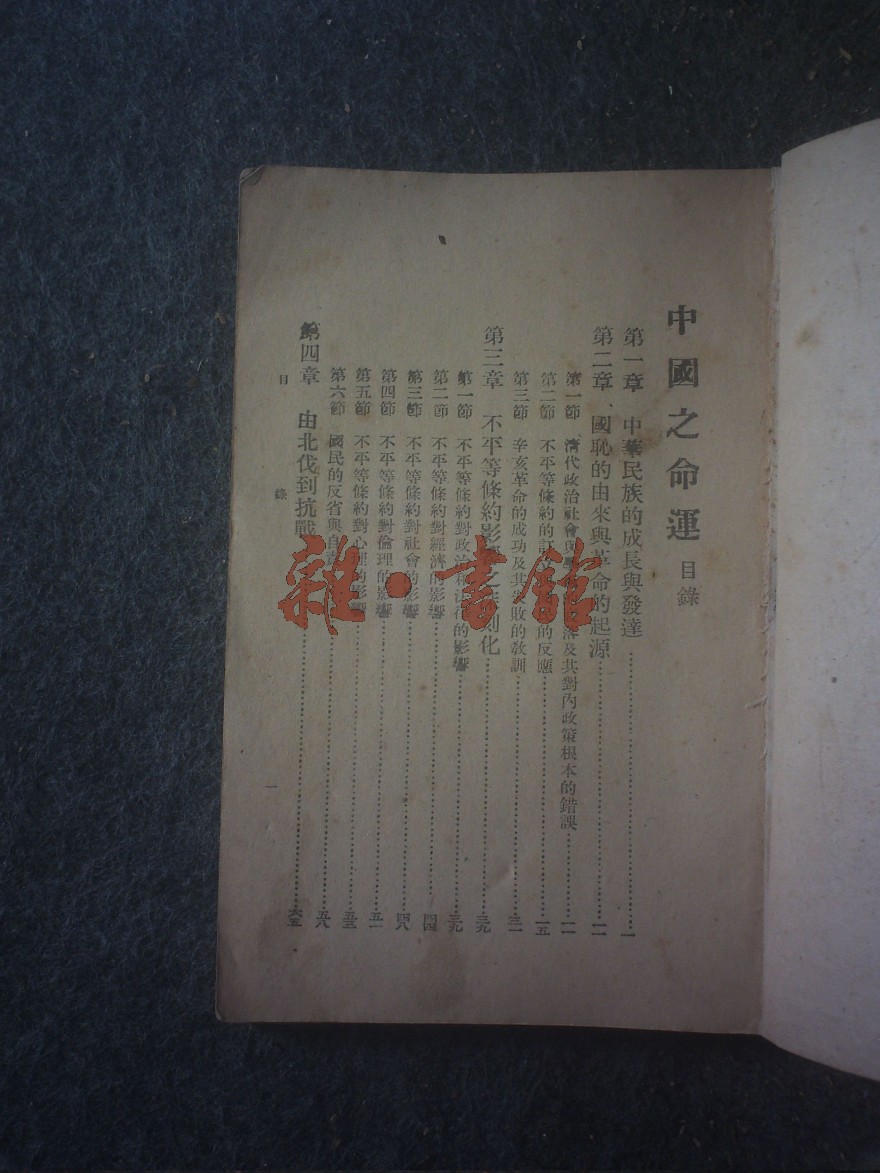 中國之命運 目錄
第一章 中華民族的成長與發達……一
第二章 國恥的由來與革命的起源……一一
第一節 清代政治社會與學 落及其對內政策根本的錯誤……一一
第二節 不平等條約的訂 的反應……一五
第三節 辛亥革命的成功及其失敗的敎訓……二一
第三章 不平等條約影 之 刻化……二九
第一節 不平等條約對政治 法律的影響……二九
第二節 不平等條約對經濟的影響……四四
第三節 不平等條約對社會的影響……四八
第四節 不平等條約對倫理的影響……五一
第五節 不平等條約對心理的影響……五三
第六節 國民的反省與自 ……五八
第四章 由北伐到抗戰……六五
目錄
一
雜·書館